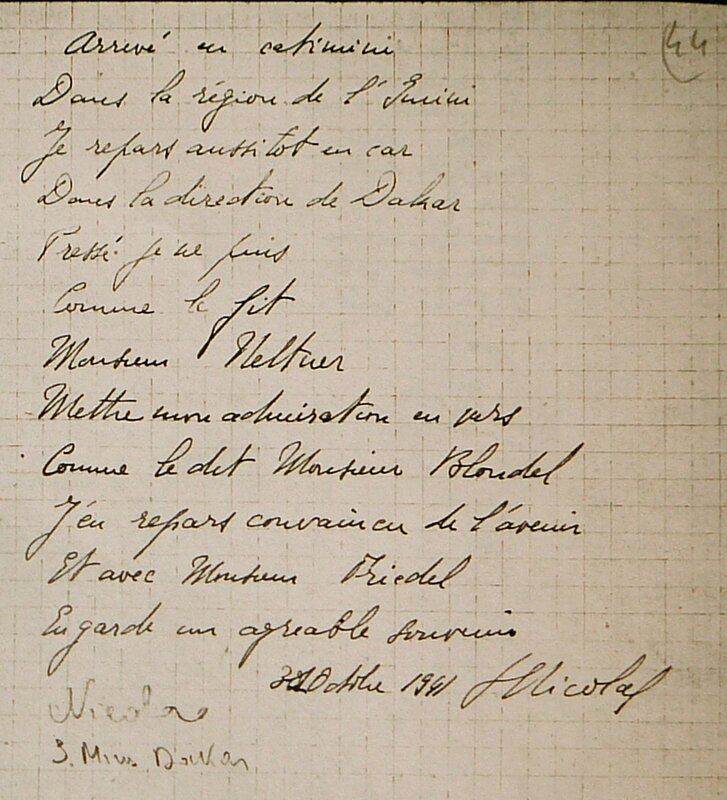 44
Arrivé en catimini
Dans la région de l'Imini
Je repars aussitot en car
Dans la direction de Dakar
Pressé je ne puis
Comme le fit
Monsieur Neltner
Mettre mon admiration en vers
Comme le dit Monsieur Blondel
J'en repars convaincu de l'avenir
Et avec Monsieur Friedel
En garde un agreable souvenir
Octobre 1941 Nicolas
Nicolas
S. Mines Dakar